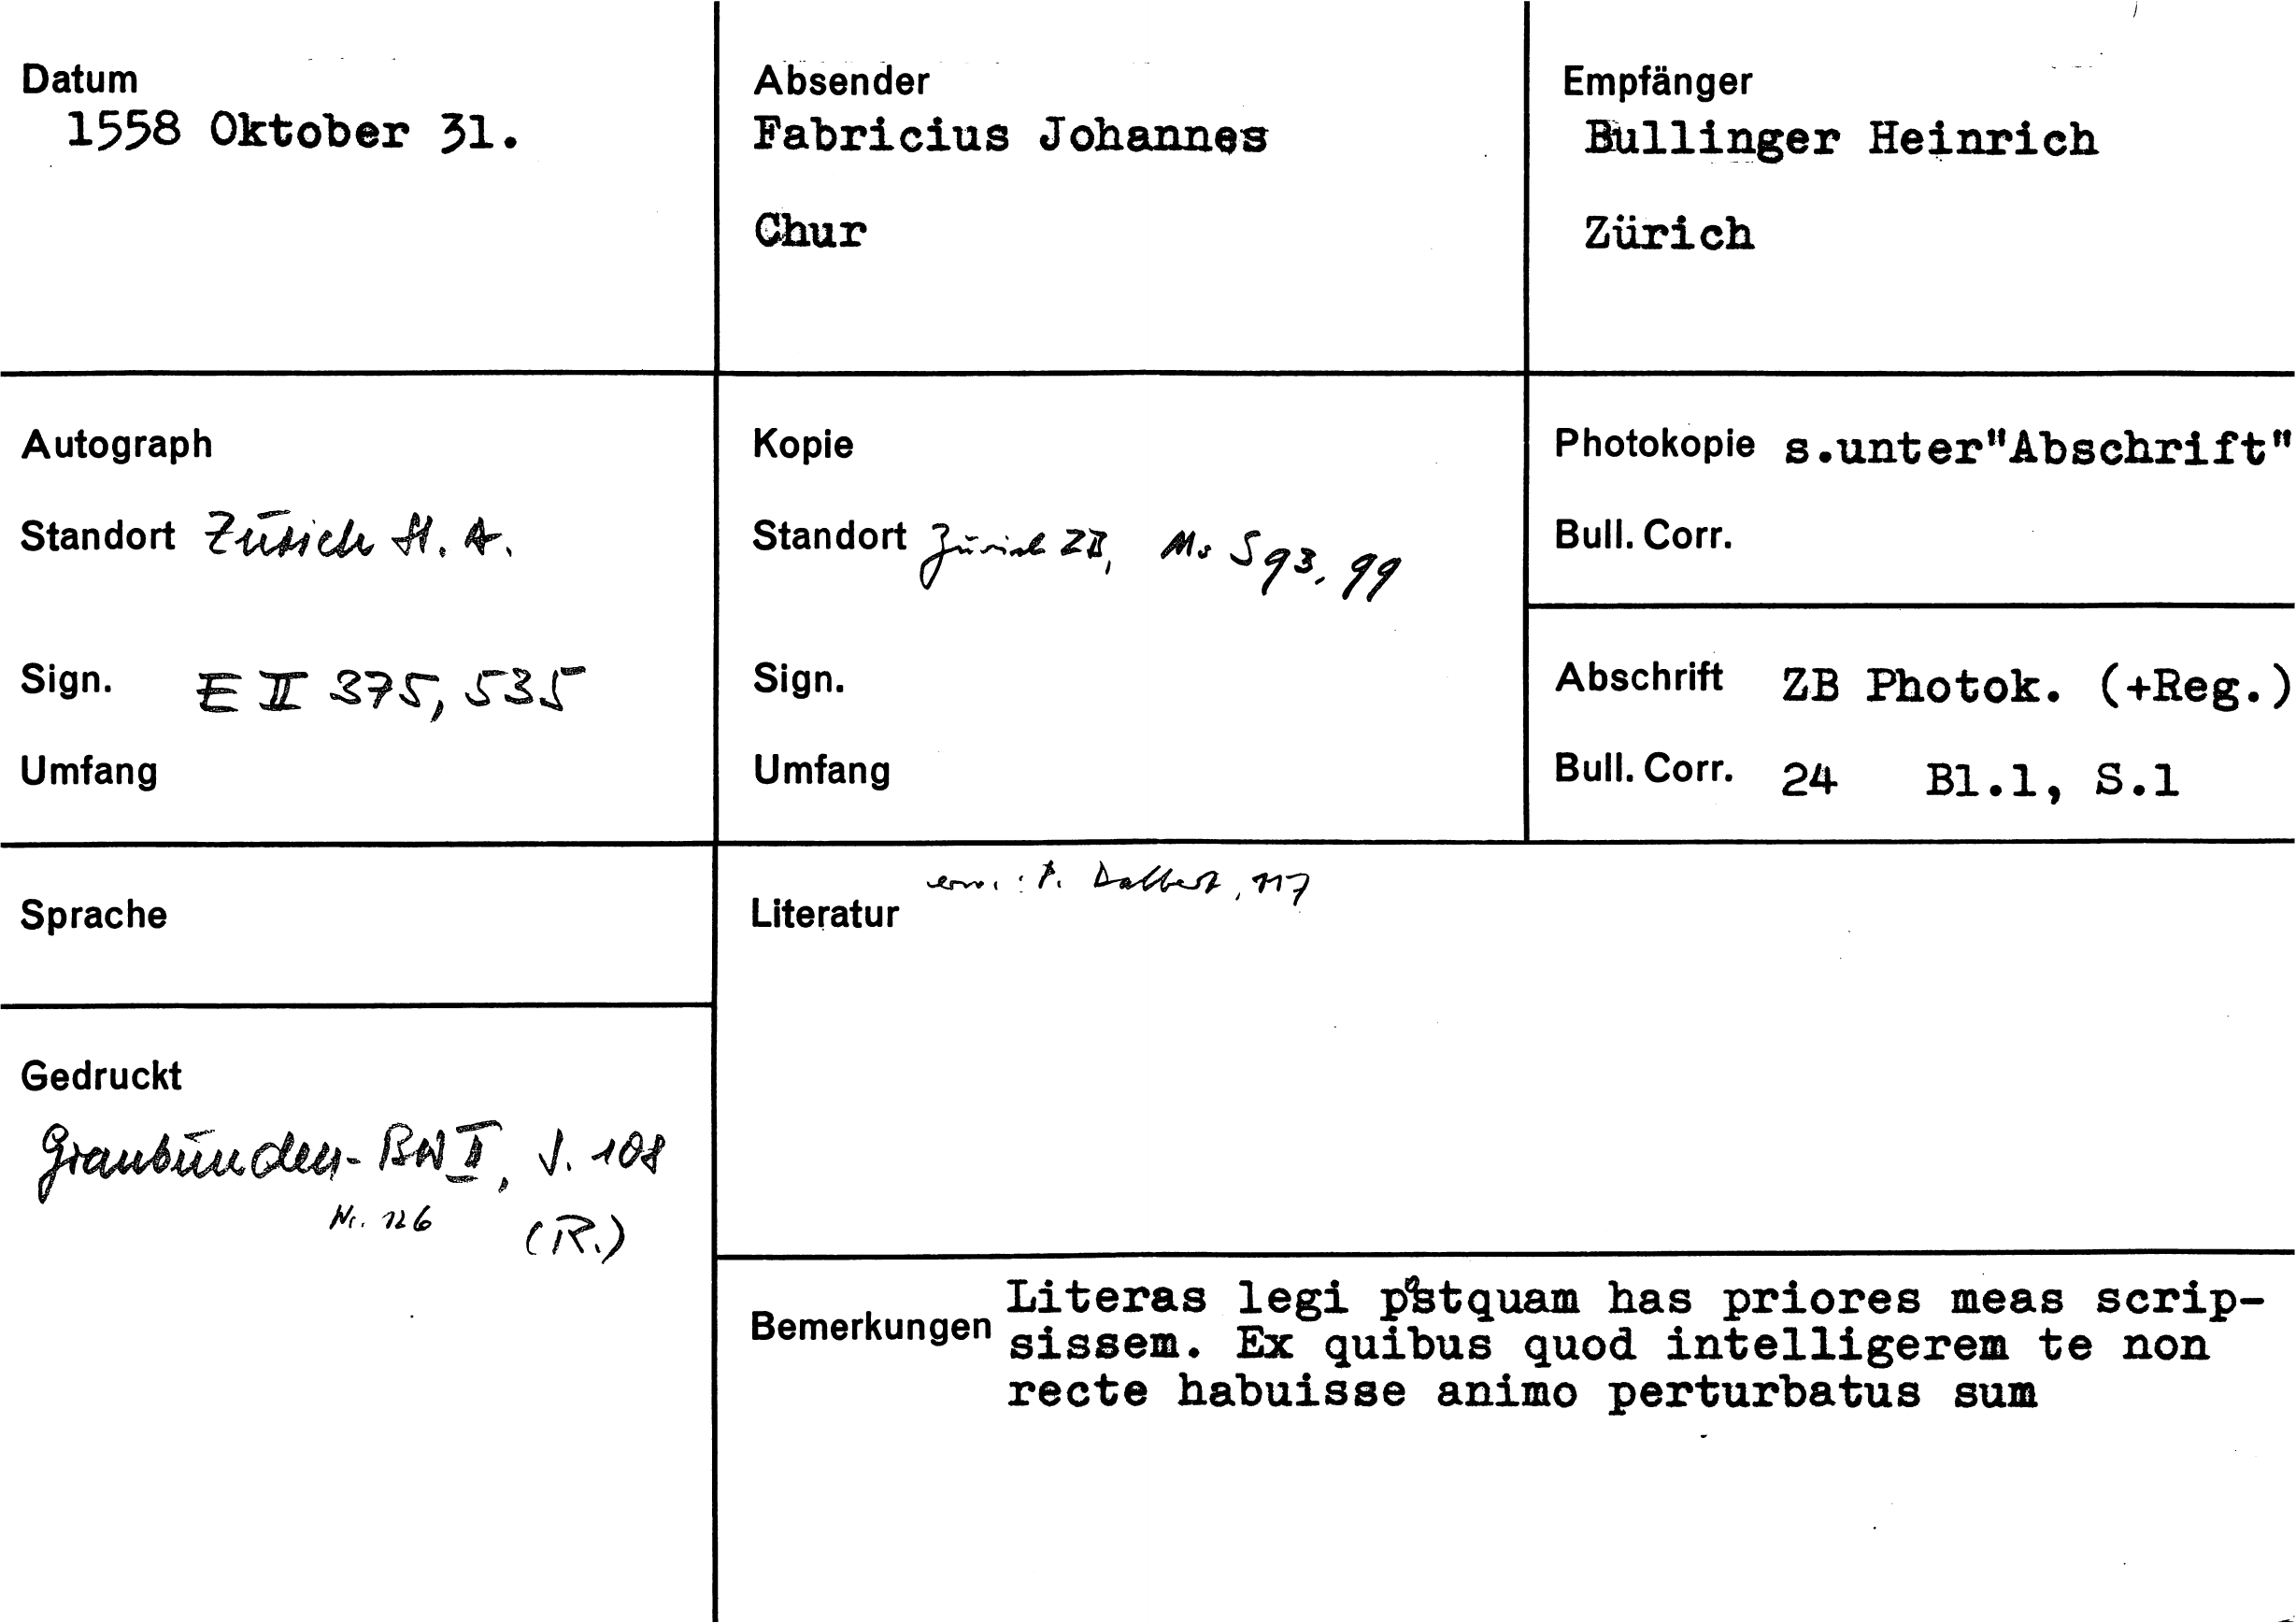 Datum
1558 Oktober 31.
Absender
Fabricius Johannes
Chur
Empfänger
Bullinger Heinrich
Zürich
Autograph
Standort Zürich St. A.
Sign. E II 375, 535
Umfang
Kopie
Standort Zürich ZB, Ms S 93, 99
Sign.
Umfang
Photokopie s.unter"Abschrift"
Bull. Corr.
Abschrift ZB Photok. (+Reg.)
Bull. Corr. 24 Bl.1, S.1
Sprache
Gedruckt
Graubünden-BW II, S. 108
Nr. 126 (R.)
Literatur erw.: P. Dalbert, 117
Bemerkungen Literas legi postquam has priores meas scrip-
sissem. Ex quibus quod intelligerem te non
recte habuisse animo perturbatus sum